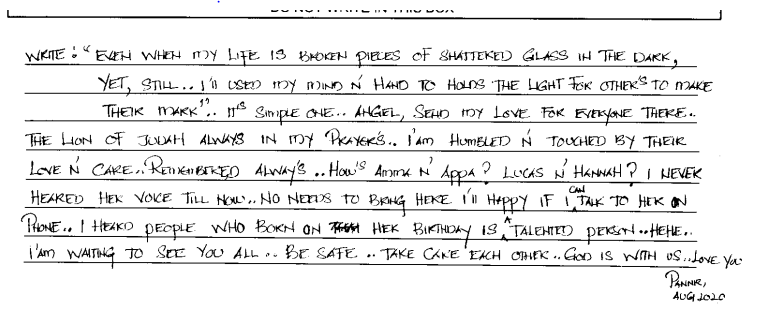 DO NOT WRITE IN THIS BOX
WRITE : " EVEN WHEN MY LIFE IS BROKEN PIECES OF SHATTERED GLASS IN THE DARK,
YET, STILL.. I'll USED MY MIND N' HAND TO HOLDS THE LIGHT FOR OTHER'S TO MAKE
THEIR MARK".. IT'S SIMPLE ONE.. ANGEL, SEND MY LOVE FOR EVERYONE THERE..
THE LION OF JUDAH ALWAYS IN MY PRAYER'S.. I'AM HUMBLED N' TOUCHED BY THEIR
LOVE N' CARE.. REMEMBERED ALWAY'S .. HOW'S AMMA N' APPA ? LUCAS N' HANNAH ? I NEVER
HEARED HER VOICE TILL NOW.. NO NEEDS TO BRING HERE I'll HAPPY IF I CAN TALK TO HER ON
PHONE.. I HEARD PEOPLE WHO BORN ON HER BIRTHDAY IS A TALENTED PERSON.. HEHE..
I'AM WAITING TO SEE YOU ALL .. BE SAFE .. TAKE CARE EACH OTHER.. GOD IS WITH US.. LOVE YOU
PANNIR,
AUG 2020